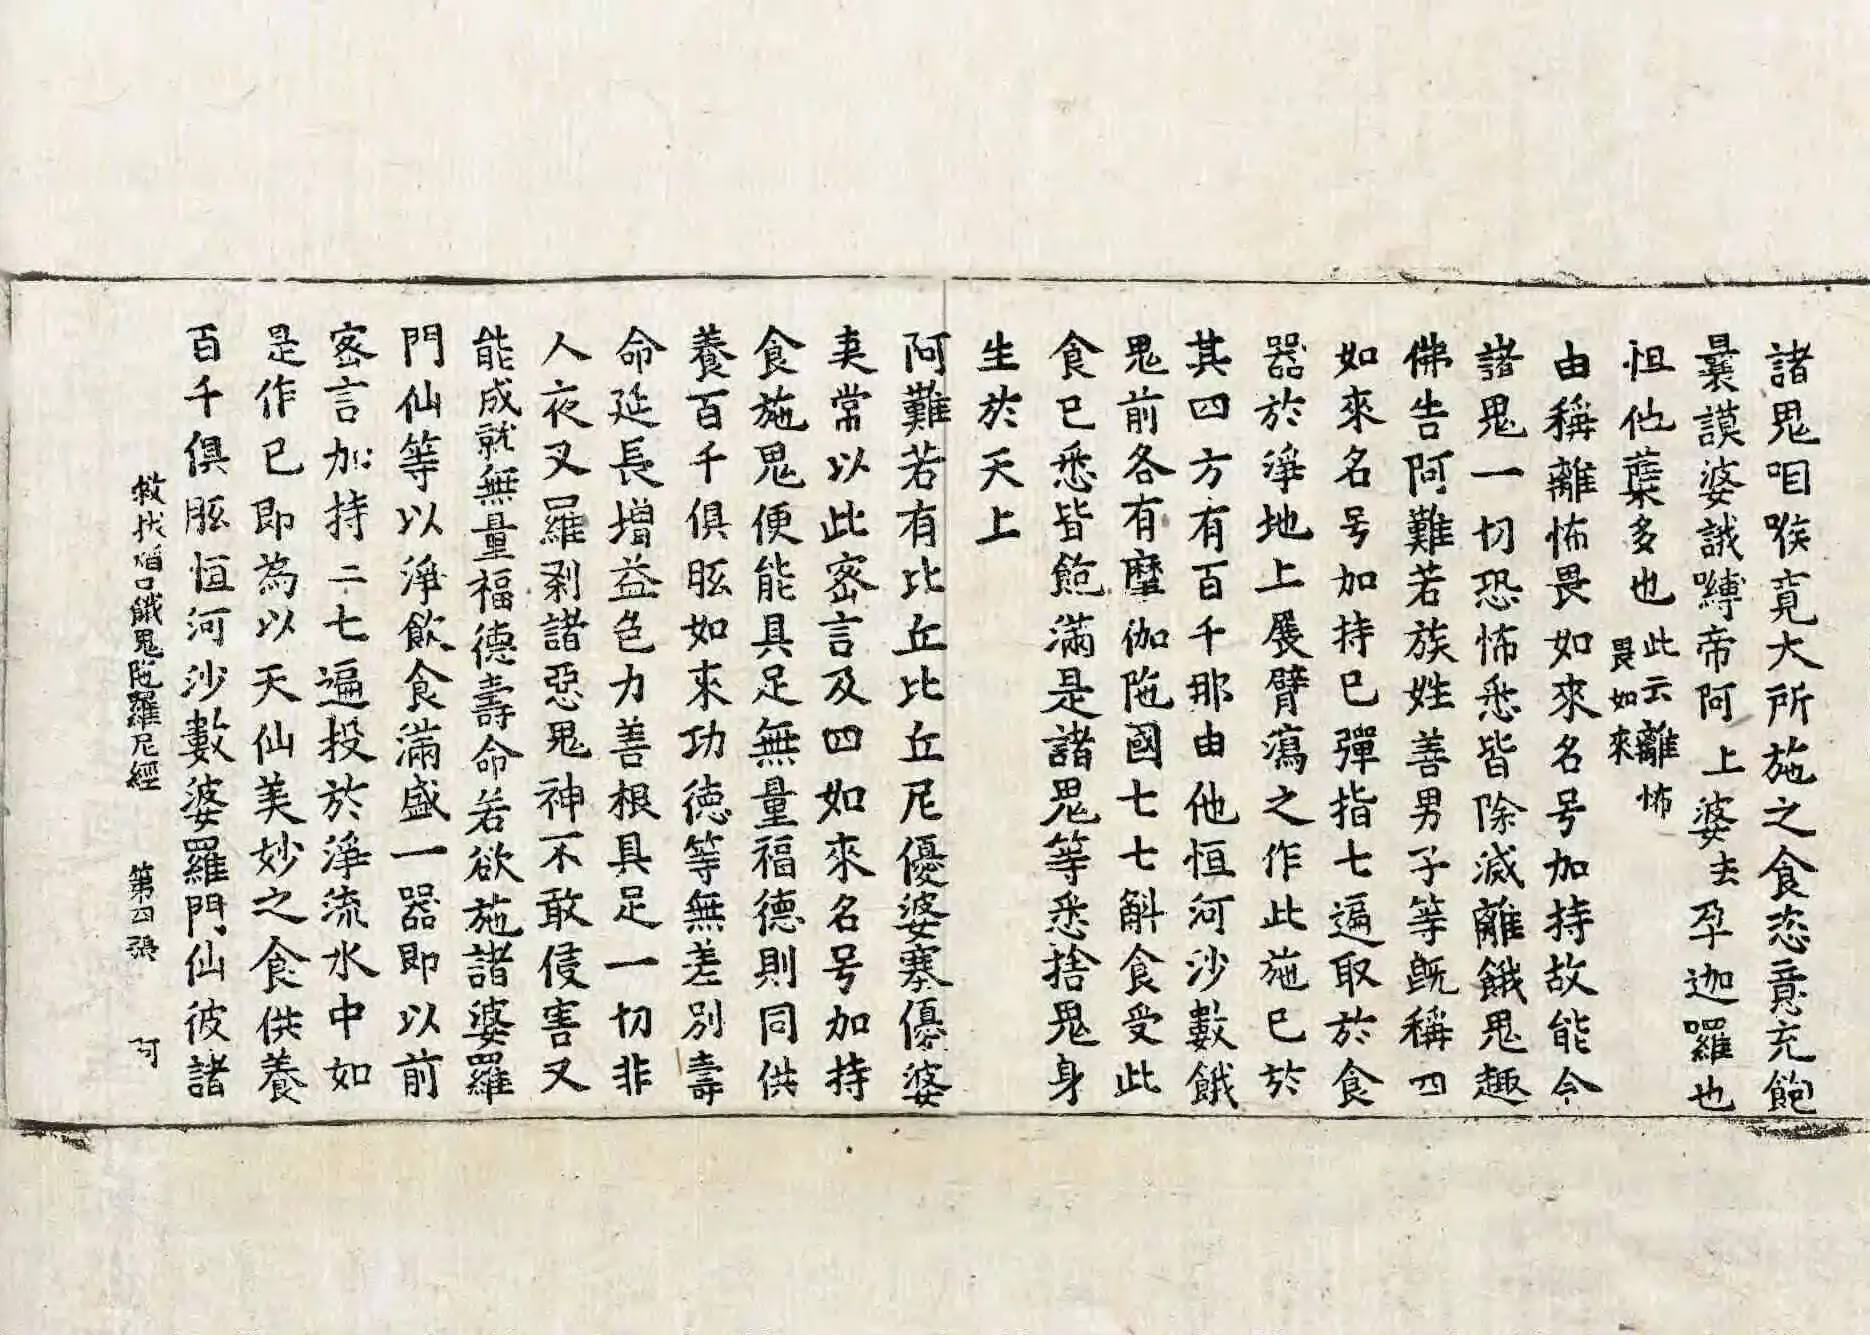 諸鬼咽喉寬大所施之食恣意充飽
曩謨婆誐嚩帝阿上婆去孕迦囉也
怛他蘖多也此云離怖畏如來
由稱離怖畏如來名号加持故能令
諸鬼一切恐怖悉皆除滅離餓鬼趣
佛告阿難若族姓善男子等旣稱四
如來名号加持已彈指七遍取於食
器於淨地上展臂瀉之作此施已於
其四方有百千那由他恒河沙數餓
鬼前各有摩伽陁國七七斛食受此
食已悉皆飽滿是諸鬼等悉捨鬼身
生於天上
阿難若有比丘比丘尼優婆塞優婆
夷常以此密言及四如來名号加持
食施鬼便能具足無量福德則同供
養百千俱胝如來功德等無差別壽
命延長增益色力善根具足一切非
人夜叉羅剎諸惡鬼神不敢侵害又
能成就無量福德壽命若欲施諸婆羅
門仙等以淨飲食滿盛一器即以前
密言加持二七遍投於淨流水中如
是作已即為以天仙美妙之食供養
百千俱胝恒河沙數婆羅門仙彼諸
救拔焰口餓鬼陁羅尼經 第四張 阿